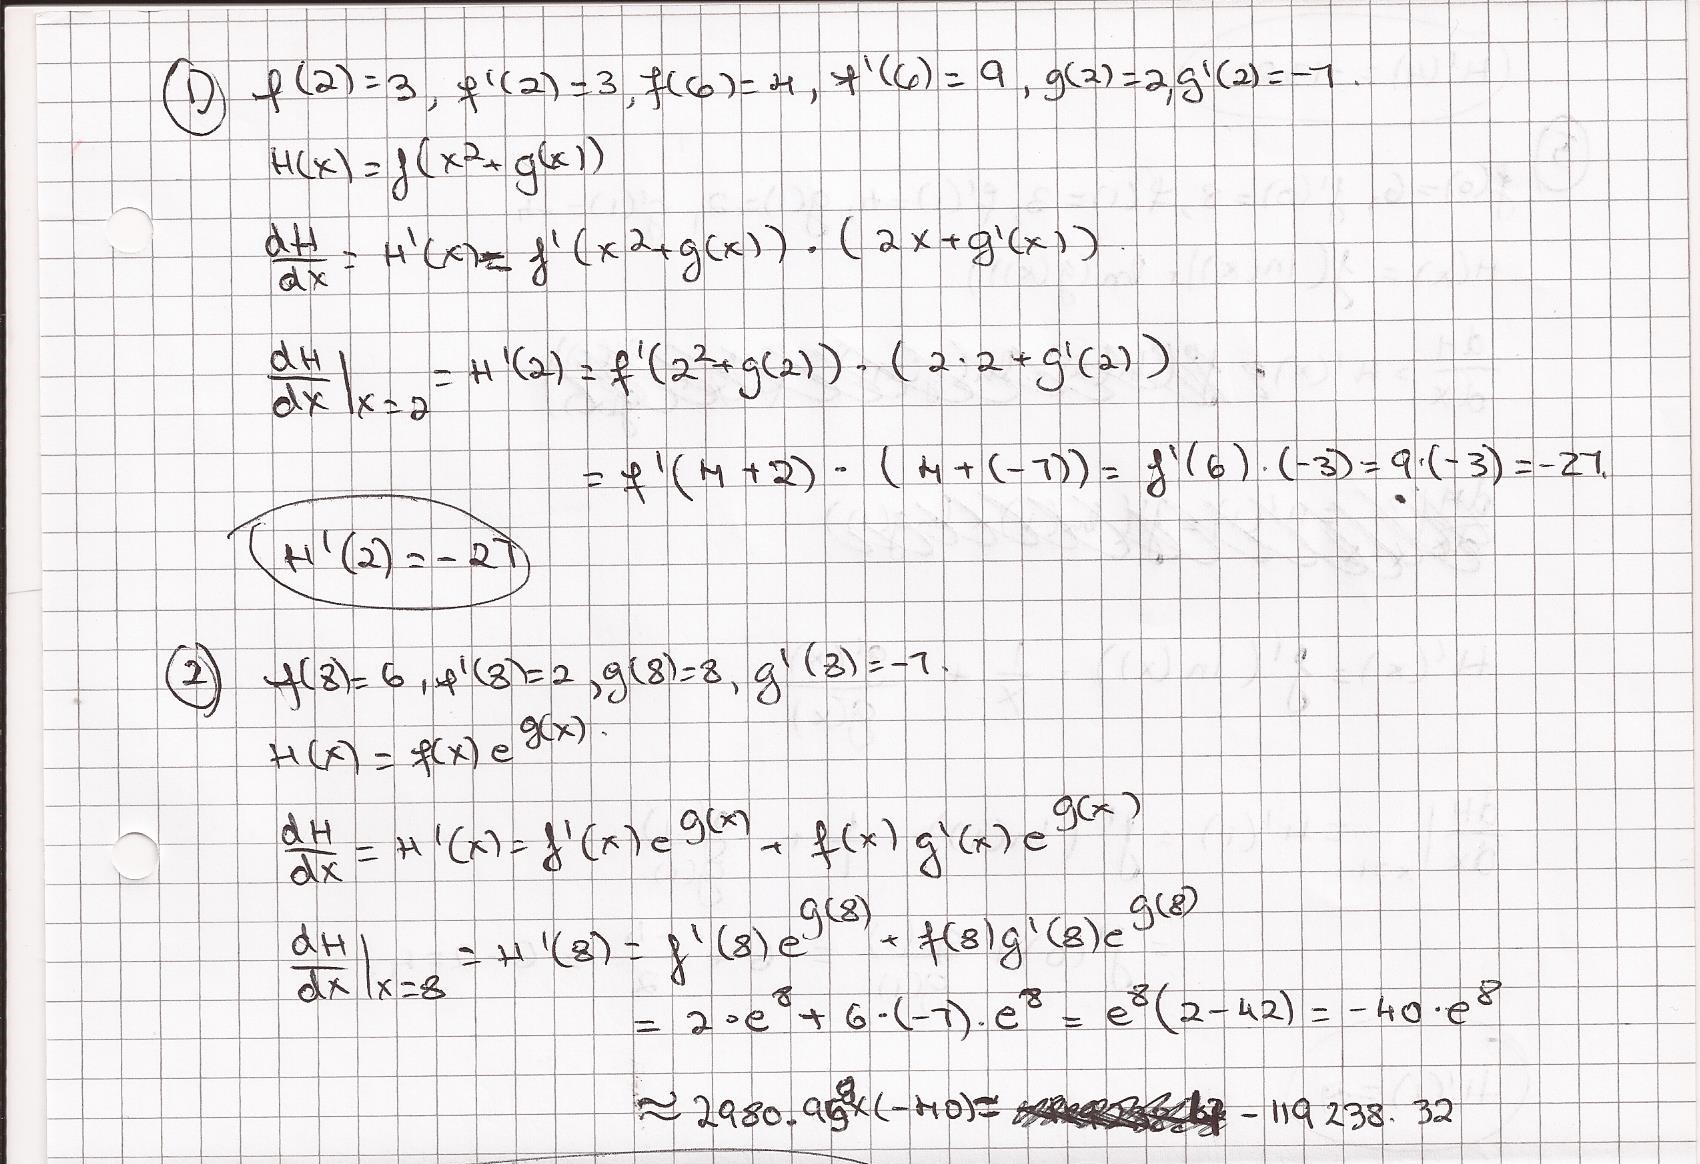 ① f(2)=3, f'(2)=3, f(6)=4, f'(6)=9, g(2)=2, g'(2)=-7.
H(x)=f(x²+g(x))
dH/dx = H'(x) = f'(x²+g(x))·(2x+g'(x))
dH/dx|x=2 = H'(2) = f'(2²+g(2))·(2·2+g'(2))
= f'(4+2)·(4+(-7)) = f'(6)·(-3) = 9·(-3) = -27.
H'(2) = -27
② f(8)=6, f'(8)=2, g(8)=8, g'(8)=-7.
H(x) = f(x)e^g(x).
dH/dx = H'(x) = f'(x)e^g(x) + f(x)g'(x)e^g(x)
dH/dx|x=8 = H'(8) = f'(8)e^g(8) + f(8)g'(8)e^g(8)
= 2·e⁸ + 6·(-7)·e⁸ = e⁸(2-42) = -40·e⁸
≈ 2980.958×(-40) = -119238.32